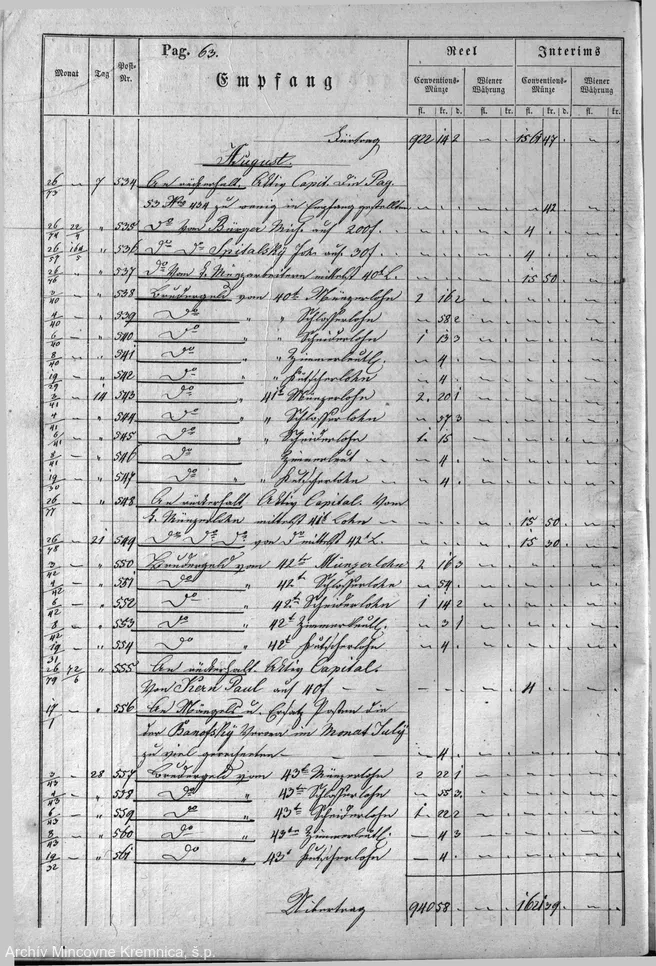 Pag. 63.
Reel
Interims
Monat
Tag
Post-Nr.
Empfang
Conventions-Münze
Wiener Währung
Conventions-Münze
Wiener Währung
fl. kr. d. fl. kr. fl. kr. d. fl. kr.
Fürtrag 922 14 2 1561 47
August.
26/73 7 534 An rückerhalt. Aktiv Capit. die Pag.
53 Nro 434 zu wenig in Empfang gestellten 42
26/74 22/4 " 535 Do von Burger Mich. auf 200f. 4
26/ 164/5 " 536 Do Do Spitalsky Joh. auf 30f. 4
26/76 " 537 Do Vom k. Münzarbeitern mittelst 40t L. 15 50
3/40 " 538 Brudergeld vom 40t Münzerlohn 2 16 2
4/40 " 539 Do " " Schlosserlohn 58 2
6/40 " 540 Do " " Scheiderlohn 1 13 3
8/40 " 541 Do " " Zimmerleutl. 4
19/29 " 542 Do " " Kutscherlohn 4
3/41 14 543 Do " 41t Münzerlohn 2 20 1
4/41 " 544 Do " " Schlosserlohn 57 3
6/41 " 545 Do " " Scheiderlohn 1 15
8/41 " 546 Do Zimmerleut 4
19/30 " 547 Do " " Kutscherlohn 4
26/77 " 548 An rückerhalt. Aktiv Capital. Vom
k. Münzerlohn mittelst 41t Lohn 15 50
26/78 21 549 Do Do Do von Do mittelst 42t L. 15 30
3/42 " 550 Brudergeld vom 42tn Münzerlohn 2 16 3
4/42 " 551 Do 42tn Schlosserlohn 54
6/42 " 552 Do " 42tn Scheiderlohn 1 14 2
8/42 " 553 Do " 42t Zimmerleutl. 3 1
19/31 " 554 Do " 42t Kutscherlohn 4
26/79 72/6 " 555 An rückerhalt. Aktiv Capital.
Von Kern Paul auf 40f 4
17/1 " 556 An Mängels u. Ersatz Posten die
der Verrer im Monat July
zu viel gerechneten 4
3/43 28 557 Brudergeld vom 43tn Münzerlohn 2 22 1
4/43 " 558 Do " 43tn Schlosserlohn 55 3
6/43 " 559 Do " 43tn Scheiderlohn 1 22 2
8/43 " 560 Do " 43tn Zimmerleutl. 4 3
19/32 " 561 Do " 43t Kutscherlohn 4
Übertrag 940 58 1621 39
Archív Mincovne Kremnica, š.p.